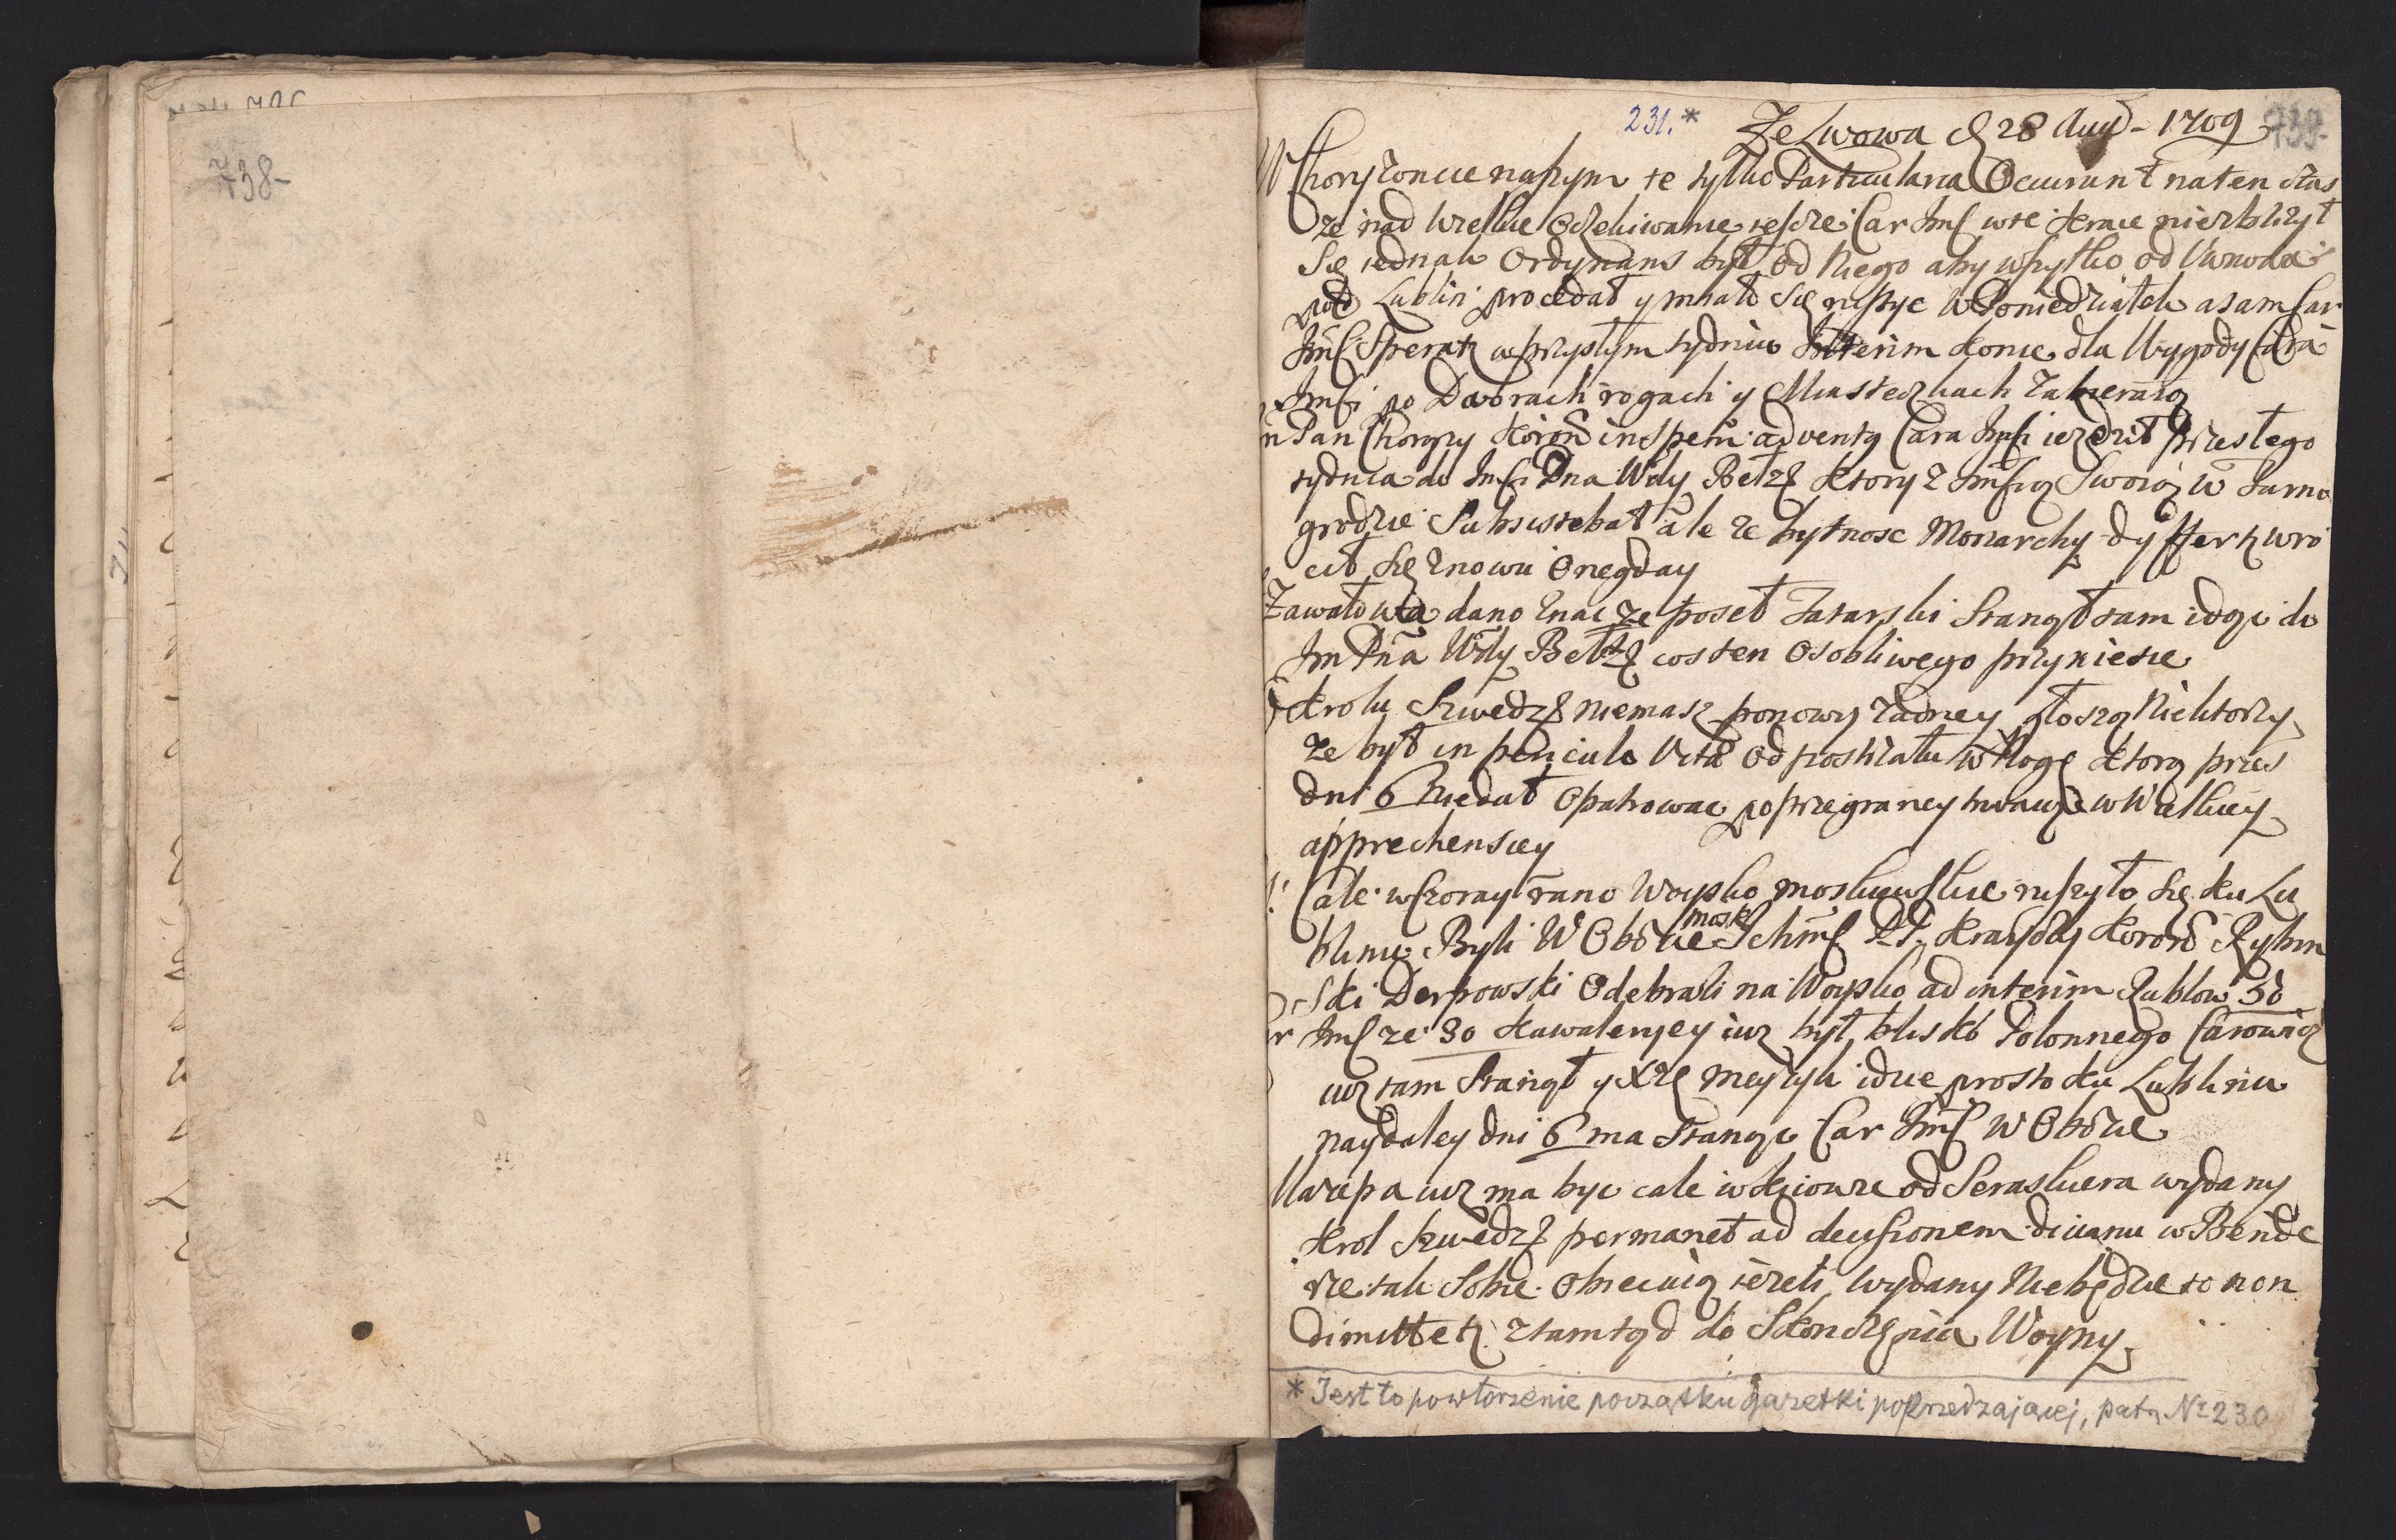 738-
231.* Ze Lwowa d 28 Aug - 1709 739-
W Choryzoncie naszym te tylko Particularia Occurunt naten czas
ze nad wielkie Oczekiwanie iescze Car Imsc w te Kraie nie zblizył
Się iednak Ordynans był od Niego aby wszytko od Lwowa
pod Lublin procedat y miało się ruszyc w Poniedziałek a sam Car
Imsc Speratz w przyszłym tydniu Interim Konie dla Wygody Cara
Imsci po Dworach rogach y Miasteczkach zabieraią
n Pan Chorązy Koron in Spem adventq Cara Imsci iezdził przeszłego
tydnia do Imsci Pna Wdy Bełz ktory z Imscią Swoią w Tarno
grodzie Subsistebat ale ze bytnosc Monarchy differtz wro
cił się znowu Onegday
Zawałowa dano znac ze poseł Tatarski Stanął tam idąc do
Im Pna Wdy Bełz cos ten Osobliwego przyniesie
Krolu Szwedz niemasz ponowy zadney głoszą Niektorzy
ze był in periculo Vitæ od postrzału w Nogę ktorą przes
dni 6 Niedał Opatrowac po przegraney trwaiąc w Wielkiey
apprechensiey
Cale wczoray rano Woysko moskiewskie ruszyło się ku Lu
blinu Byli W Obozie mosk Ichmsc PP. Kraysody Koron Rybin
ski Derpowski Odebrali na Woysko ad interim Rublow 30
r Imsc ze 30 Kawaleryey iuz był blisko Polonnego Carowicz
iuz tam Stanął y Xze meżyk idzie prosto ku Lublinu
naydaley dni 6 ma Stanąc Car Imsc W Obozie
Mazepa iuz ma byc cale w Kiiowie od Seraskiera wydany
Krol Szwedz permanet ad decisionem divanu w Bende
rze tak Sobie Obiecuią iezeli Wydany Niebędzie to non
dimittetz ztamtąd do Skonczenia Woyny
* Jest to powtórzenie początku gazetki poprzedzającej, patrz № 230